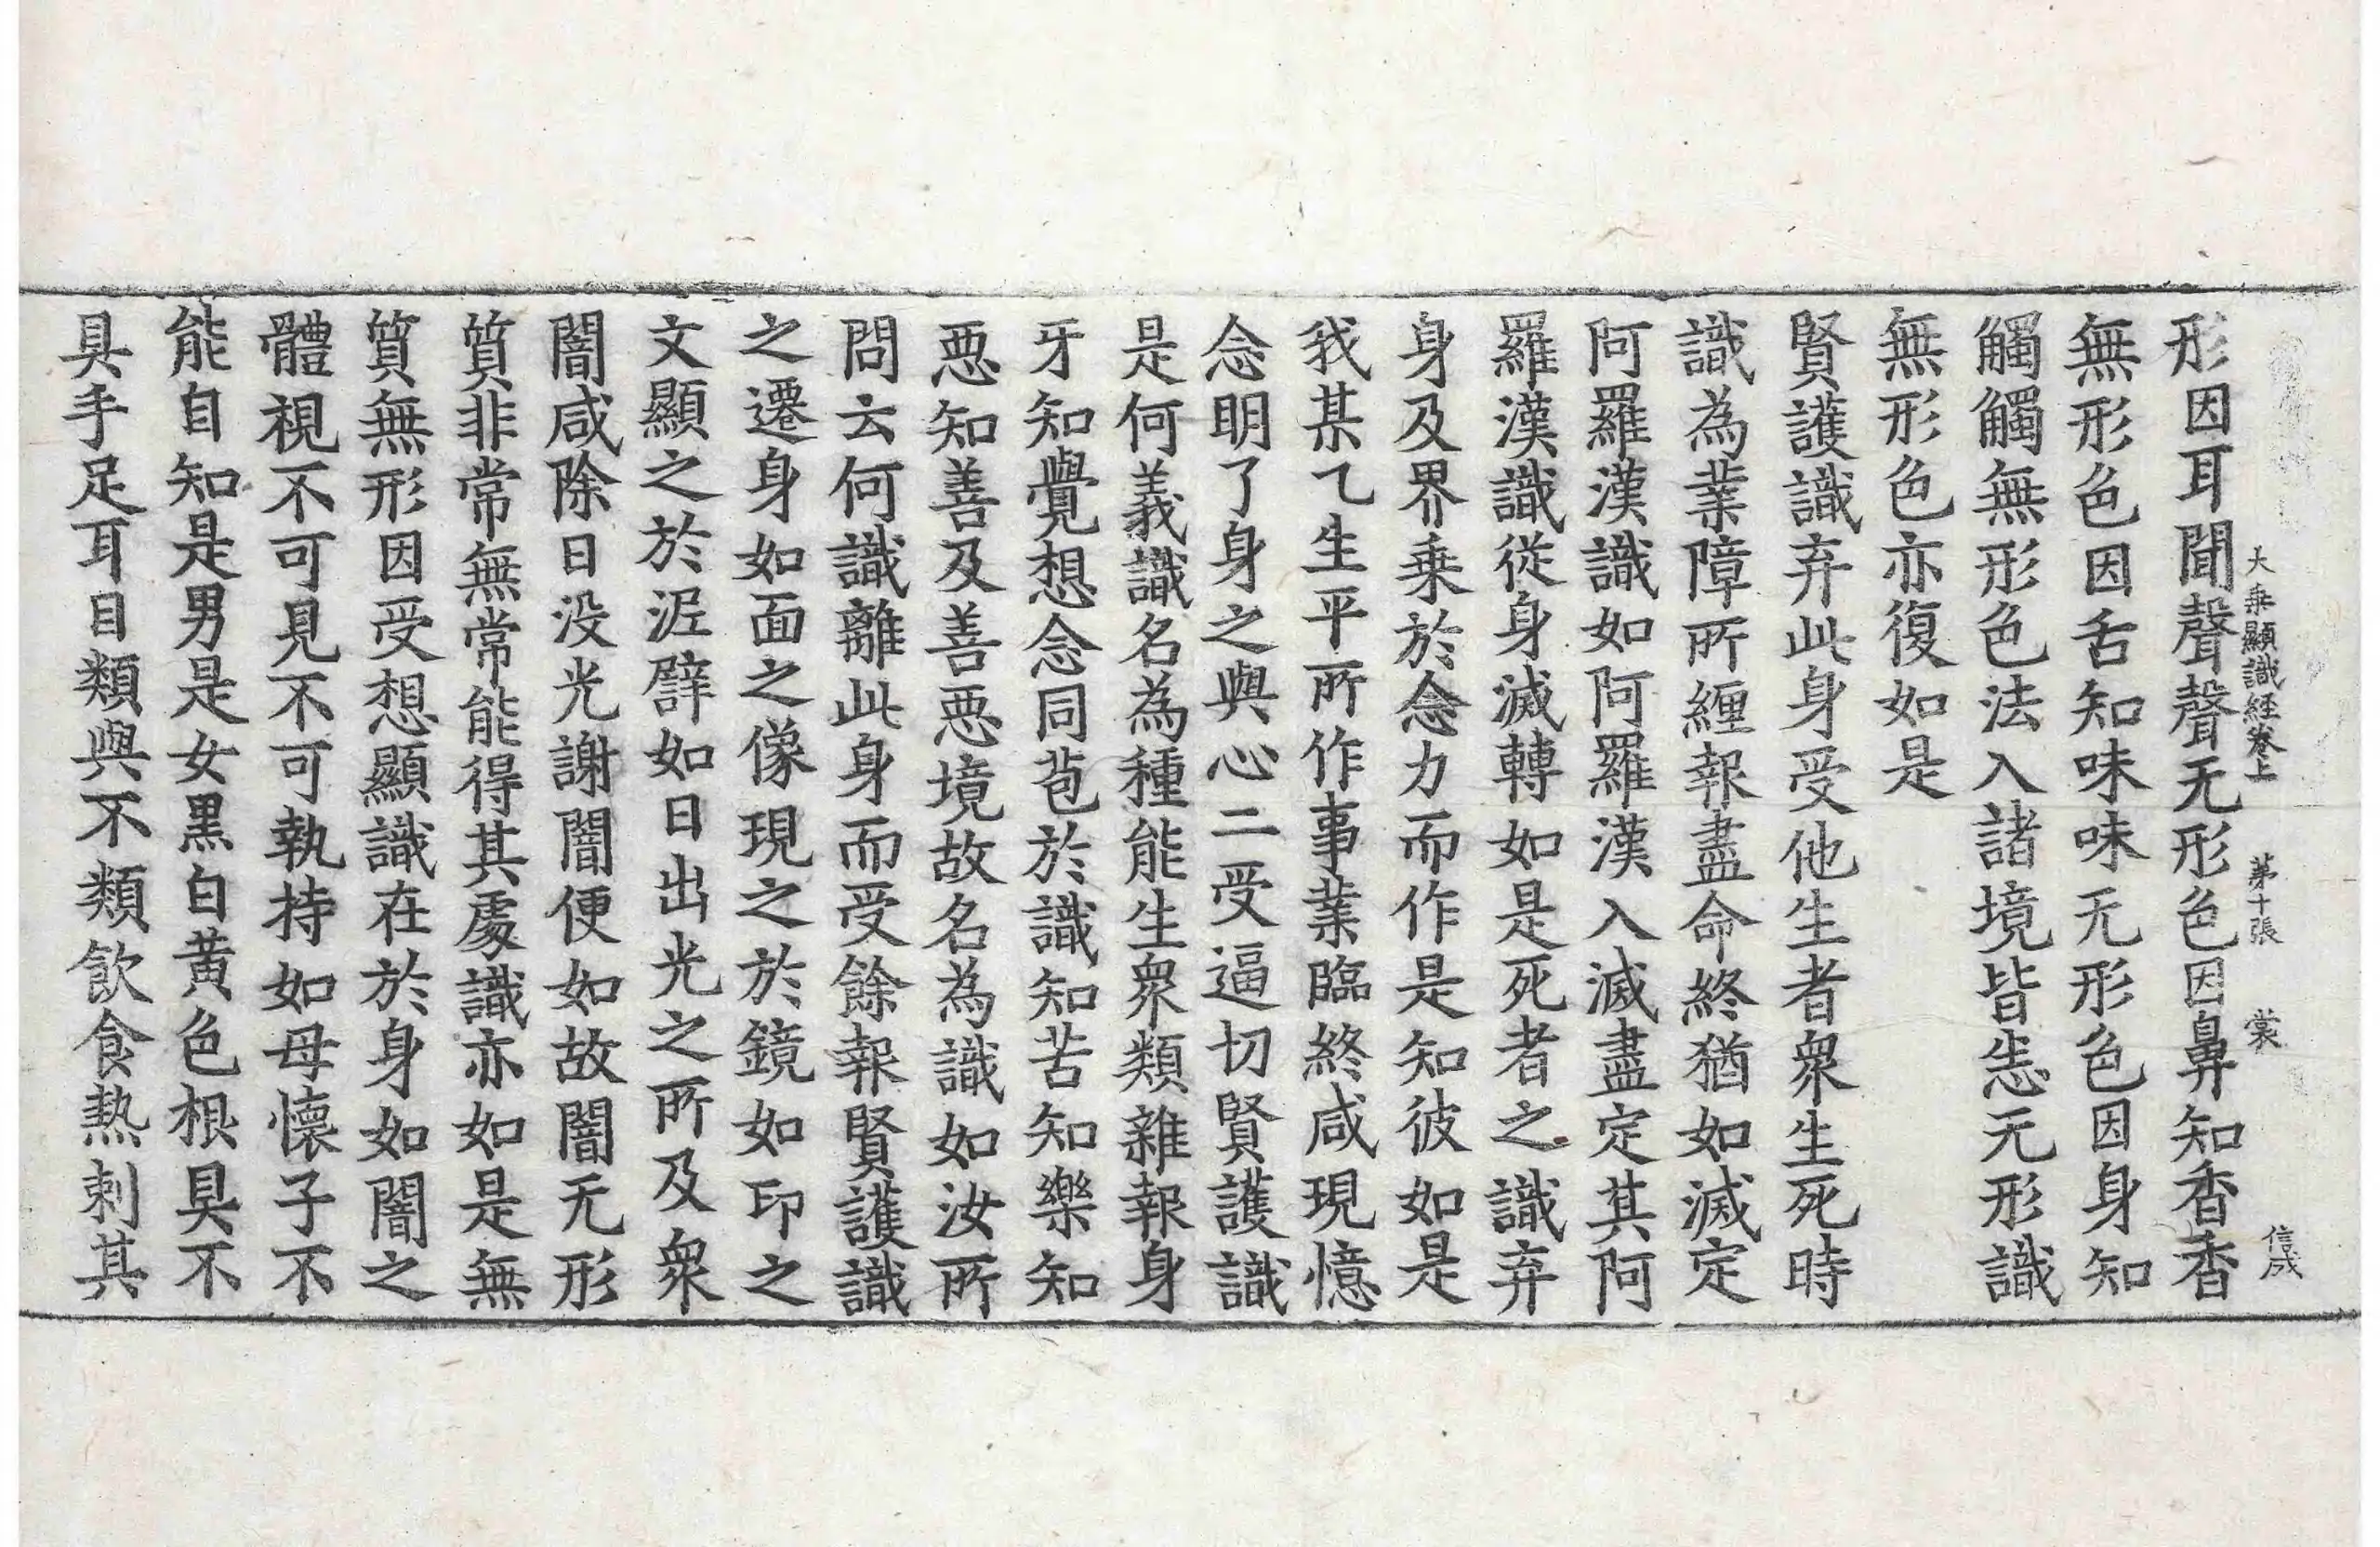 大乗顯識経卷上 苐十張 裳 信成
形因耳聞聲聲无形色因鼻知香香
無形色因舌知味味无形色因身知
觸觸無形色法入諸境皆恙无形識
無形色亦復如是
賢護識弃此身受他生者衆生死時
識為業障所纏報盡命終猶如滅定
阿羅漢識如阿羅漢入滅盡定其阿
羅漢識從身滅轉如是死者之識弃
身及界乗於念力而作是知彼如是
我某乙生平所作事業臨終咸現憶
念明了身之與心二受逼切賢護識
是何義識名為種能生衆類雜報身
牙知覺想念同苞於識知苦知樂知
惡知善及善惡境故名為識如汝所
問云何識離此身而受餘報賢護識
之遷身如面之像現之於鏡如印之
文顯之於泥辟如日出光之所及衆
闇咸除日没光謝闇便如故闇无形
質非常無常能得其處識亦如是無
質無形因受想顯識在於身如闇之
體視不可見不可執持如母懐子不
能自知是男是女黒白黄色根具不
具手足耳目類與不類飲食熱刺其